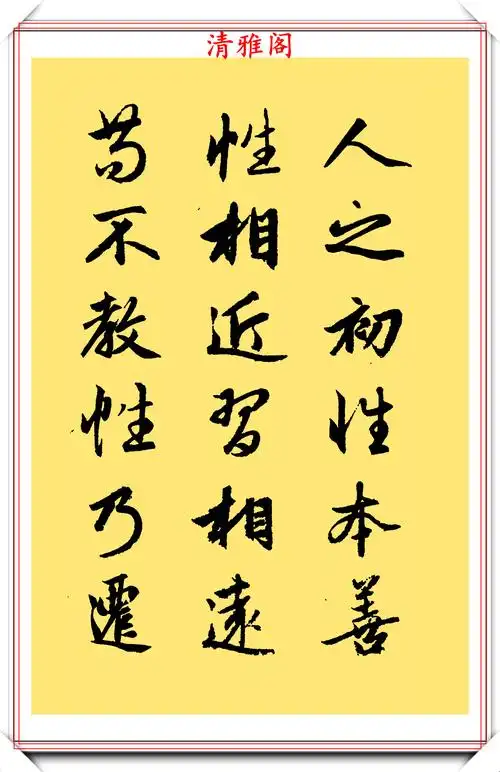 清雅阁
人之初性本善
性相近習相遠
苟不教性乃遷